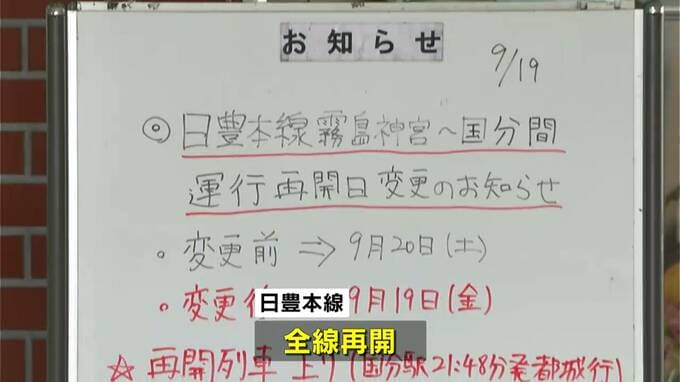 お知らせ
9/19
◎日豊本線霧島神宮～国分間
運行再開日変更のお知らせ
。変更前 ⇒ 9月20日(土)
。変更 9月19日(金)
日豊本線
全線再開
☆再開列車 上り(国分駅21:48分発都城行)